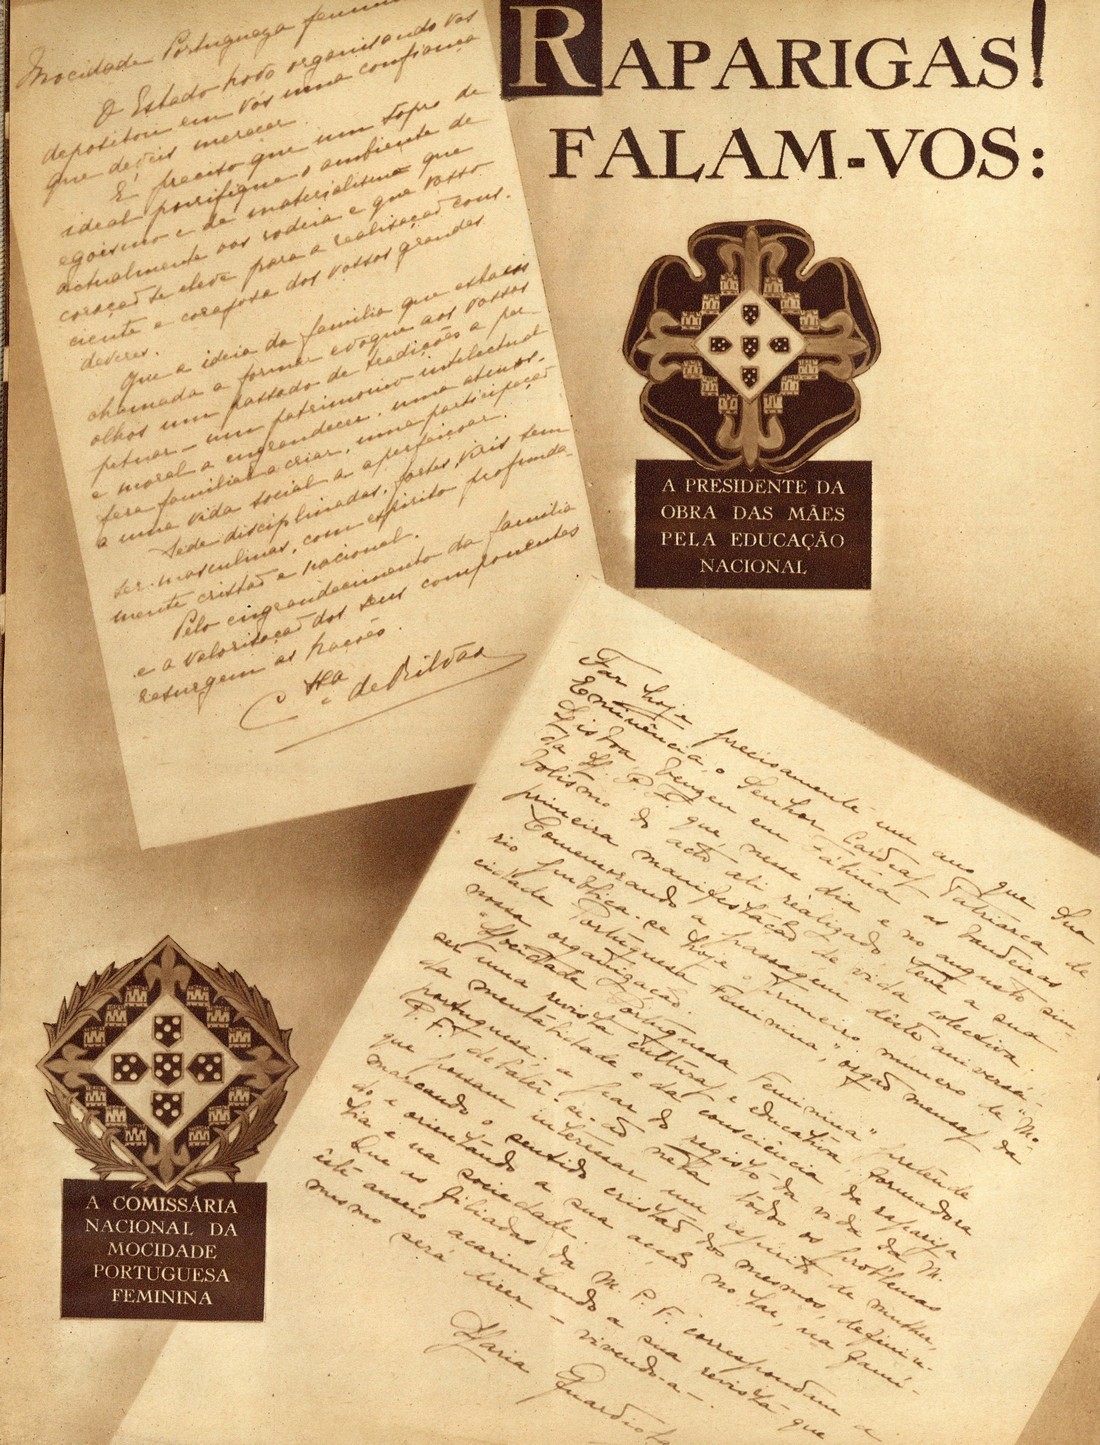 RAPARIGAS!
FALAM-VOS:
Mocidade Portuguesa
O Estado Novo organisando vos
depositou em vós uma confiança
que deveis merecer.
E preciso que um sopro de
ideal purifique o ambiente de
egoismo e de materialismo que
actualmente nos rodeia e que vosso
coração se eleve para a realisação cons-
ciente e corajosa dos vossos grandes
deveres.
Que a ideia da familia que estaes
chamada a formar evoque aos vossos
olhos um passado de tradições a per-
petuar — um patrimonio intelectual
e moral a engrandecer, uma atmos-
fera familiar a criar, uma participação
a uma vida social a aperfeiçoar.
Sêde disciplinadas, fortes, viris sem
ser masculinas, com espirito profunda-
mente cristão e nacional.
Pelo engrandecimento da familia
e a valorisação dos seus componentes
resurgem as nações.
C.ssa de Rilvas
A PRESIDENTE DA
OBRA DAS MÃES
PELA EDUCAÇÃO
NACIONAL
Faz hoje precisamente um ano que Sua
Eminência, o Senhor Cardeal Patriarca de
Lisboa, benzeu em Fátima as bandeiras
da M. P. F. que, nesse dia e no augusto sim-
bolismo do acto ali realizado, teve a sua
primeira manifestação de vida colectiva.
Comemorando a passagem dêste aniversá-
rio publica-se hoje o primeiro número de "Mo-
cidade Portuguesa Feminina", orgão mensal da
nossa organização.
"Mocidade Portuguesa Feminina" pretende
ser uma revista cultural e educativa, formadora
da mentalidade e da consciência da rapariga
portuguesa: a par do registo da vida da M.
P. F. debater-se-ão nela todos os problemas
que possam interessar um espirito de mulher,
marcando o sentido cristão dos mesmos, definin-
do e orientando a sua acção no lar, na famí-
lia e na sociedade.
Que as filiadas da M. P. F. correspondam a
êste anseio acarinhando a sua revista que
mesmo será viver — vivendo-a —
Maria Guardiola
A COMISSÁRIA
NACIONAL DA
MOCIDADE
PORTUGUESA
FEMININA